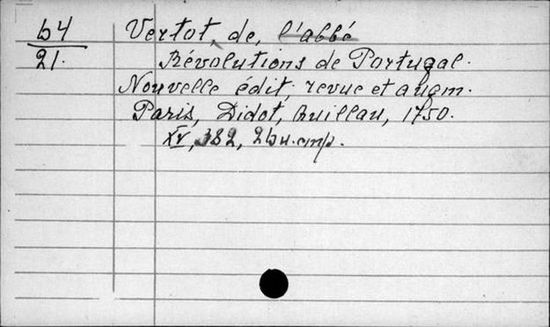 b4
21.
Vertot, de, l'abbé
Révolutions de Portugal.
Nouvelle édit. revue et augm.
Paris, Didot, Quillau, 1750.
XV, 382, 2 bu. стр.